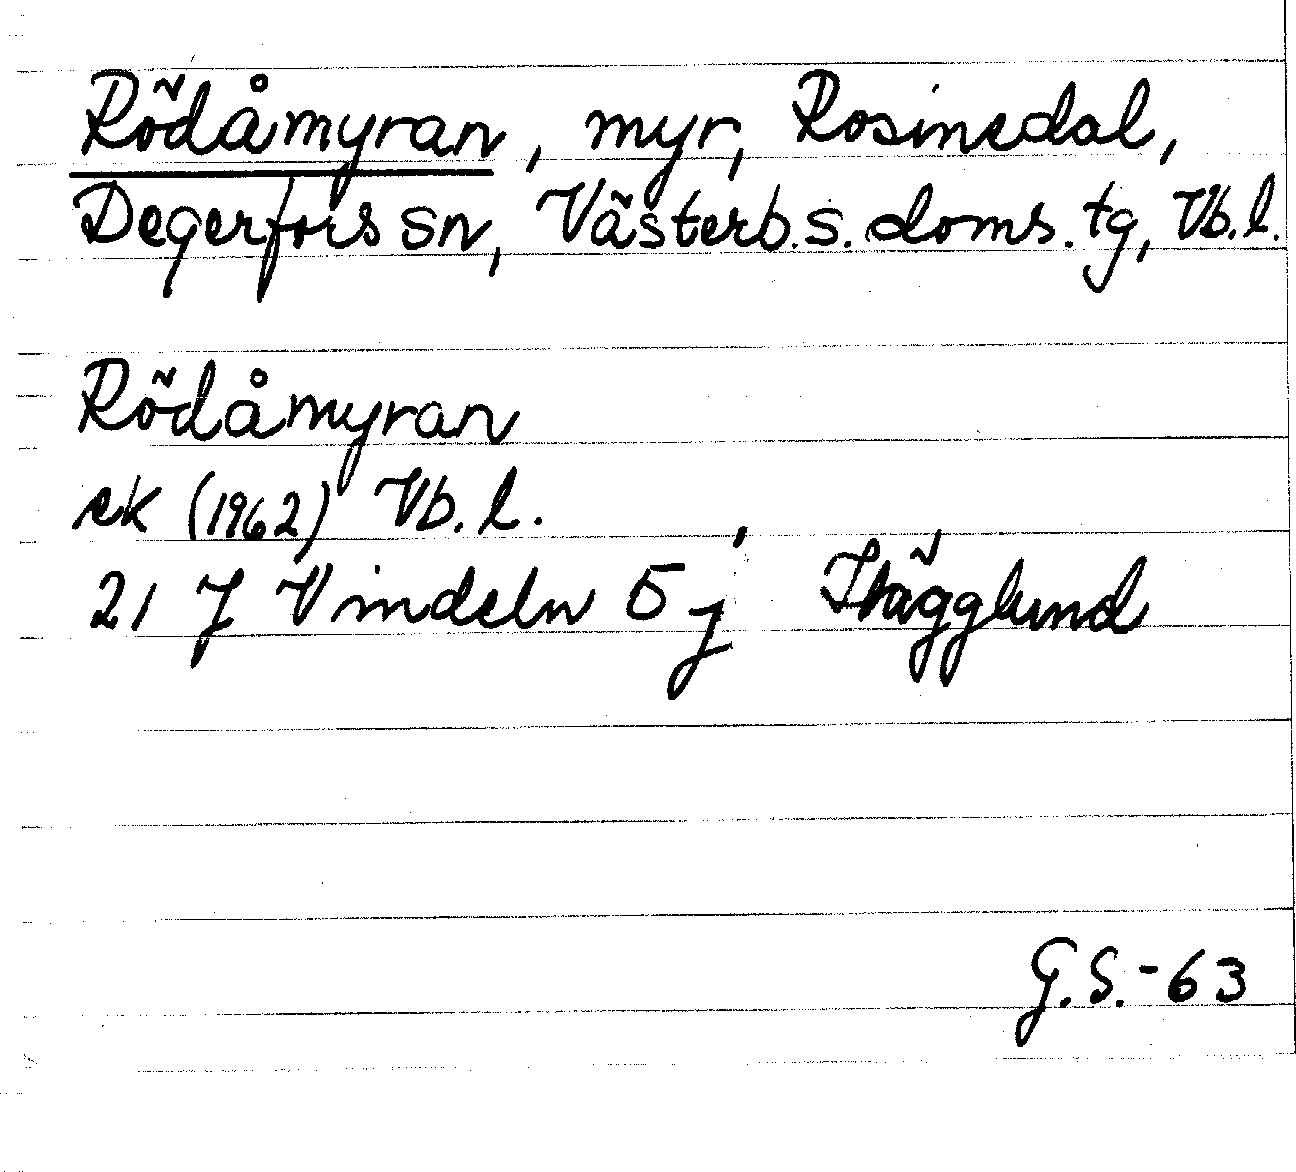 Rödåmyran, myr, Rosinedal,
Degerfors sn, Västerb.s.doms.tg, Vb.l.
Rödåmyran
ek (1962) Vb.l.
21 J Vindeln 5 j Hägglund
G.S.-63